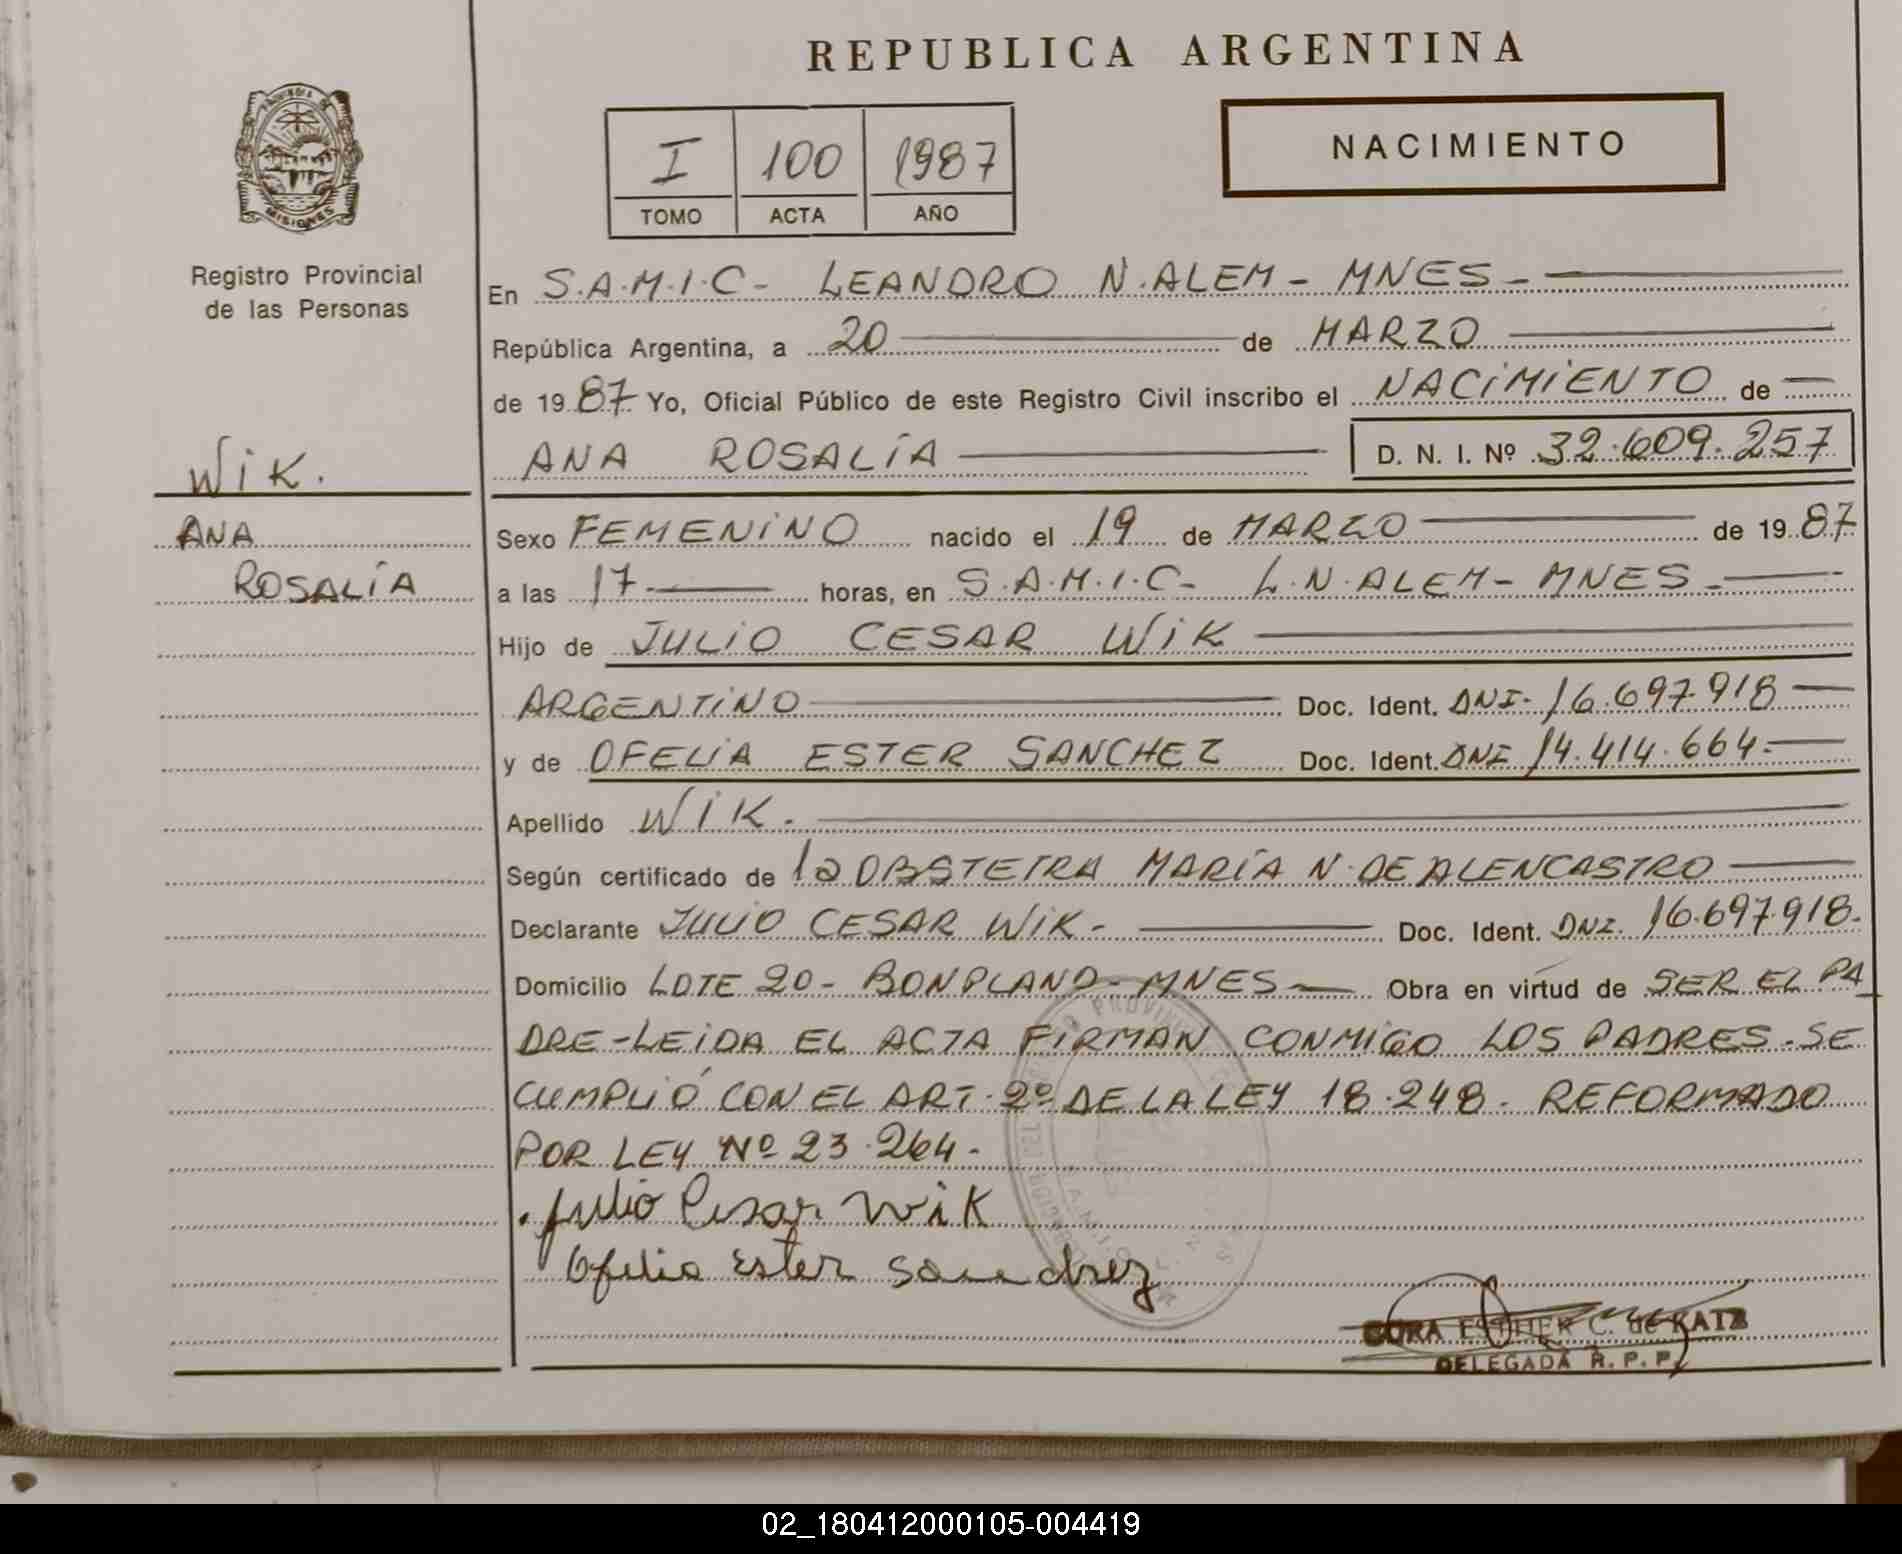 REPUBLICA ARGENTINA
PROVINCIA DE
MISIONES
Registro Provincial
de las Personas
I 100 1987
TOMO ACTA AÑO
NACIMIENTO
En S.A.M.I.C- LEANDRO N.ALEM - MNES -
República Argentina, a 20 de MARZO
de 1987 Yo, Oficial Público de este Registro Civil inscribo el NACIMIENTO de
ANA ROSALÍA D. N. I. Nº 32.609.257
WIK.
ANA
ROSALÍA
Sexo FEMENINO nacido el 19 de MARZO de 1987
a las 17 horas, en S.A.M.I.C- L.N.ALEM- MNES-
Hijo de JULIO CESAR WIK
ARGENTINO Doc. Ident. DNI- 16.697.918
y de OFELIA ESTER SANCHEZ Doc. Ident. DNI 14.414.664.
Apellido WIK.
Según certificado de la OBSTETRA MARÍA N. DE ALENCASTRO
Declarante JULIO CESAR WIK- Doc. Ident. DNI. 16.697.918.
Domicilio LOTE 20- BONPLAND-MNES- Obra en virtud de SER EL PA
DRE-LEIDA EL ACTA FIRMAN CONMIGO LOS PADRES-SE
CUMPLIÓ CON EL ART. 2º DE LA LEY 18.248. REFORMADO
POR LEY Nº 23.264-
Julio Cesar Wik
Ofelia Ester Sanchez
ESTHER C. de KATZ
DELEGADA R. P. P.
02_180412000105-004419